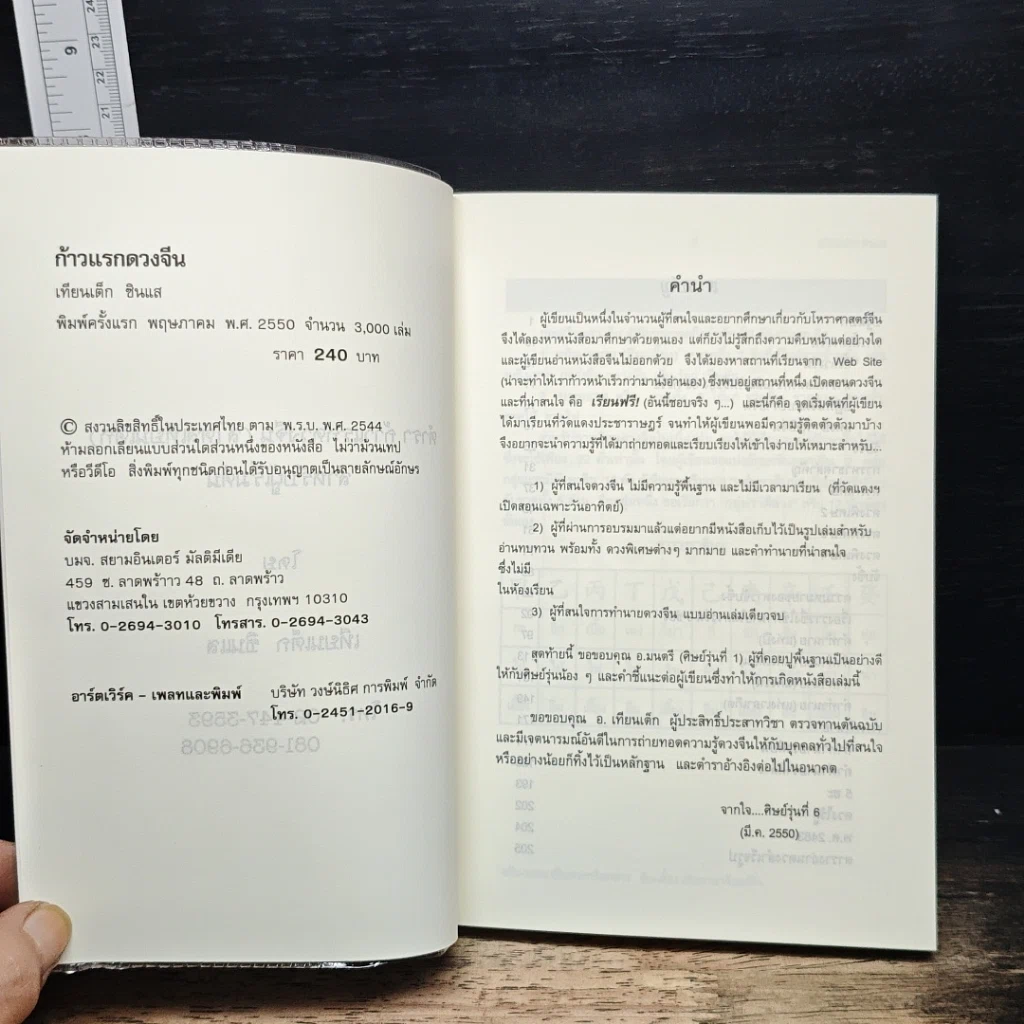 9
24
23
22
21
ก้าวแรกดวงจีน
เทียนเต็ก ซินแส
พิมพ์ครั้งแรก พฤษภาคม พ.ศ. 2550 จำนวน 3,000 เล่ม
ราคา 240 บาท
© สงวนลิขสิทธิ์ในประเทศไทย ตาม พ.ร.บ. พ.ศ. 2544
ห้ามลอกเลียนแบบส่วนใดส่วนหนึ่งของหนังสือ ไม่ว่าม้วนเทป
หรือวีดีโอ สิ่งพิมพ์ทุกชนิดก่อนได้รับอนุญาตเป็นลายลักษณ์อักษร
จัดจำหน่ายโดย
บมจ. สยามอินเตอร์ มัลติมีเดีย
459 ซ. ลาดพร้าว 48 ถ. ลาดพร้าว
แขวงสามเสนใน เขตห้วยขวาง กรุงเทพฯ 10310
โทร. 0-2694-3010 โทรสาร. 0-2694-3043
อาร์ตเวิร์ค - เพลทและพิมพ์ บริษัท วงษ์นิธิศ การพิมพ์ จำกัด
โทร. 0-2451-2016-9
คำนำ
ผู้เขียนเป็นหนึ่งในจำนวนผู้ที่สนใจและอยากศึกษาเกี่ยวกับโหราศาสตร์จีน
จึงได้ลองหาหนังสือมาศึกษาด้วยตนเอง แต่ก็ยังไม่รู้สึกถึงความคืบหน้าแต่อย่างใด
และผู้เขียนอ่านหนังสือจีนไม่ออกด้วย จึงได้มองหาสถานที่เรียนจาก Web Site
(น่าจะทำให้เราก้าวหน้าเร็วกว่ามานั่งอ่านเอง) ซึ่งพบอยู่สถานที่หนึ่ง เปิดสอนดวงจีน
และที่น่าสนใจ คือ เรียนฟรี! (อันนี้ชอบจริง ๆ...) และนี่ก็คือ จุดเริ่มต้นที่ผู้เขียน
ได้มาเรียนที่วัดแดงประชาราษฎร์ จนทำให้ผู้เขียนพอมีความรู้ติดตัวตัวมาบ้าง
จึงอยากจะนำความรู้ที่ได้มาถ่ายทอดและเรียบเรียงให้เข้าใจง่ายให้เหมาะสำหรับ...
1) ผู้ที่สนใจดวงจีน ไม่มีความรู้พื้นฐาน และไม่มีเวลามาเรียน (ที่วัดแดงฯ
เปิดสอนเฉพาะวันอาทิตย์)
2) ผู้ที่ผ่านการอบรมมาแล้วแต่อยากมีหนังสือเก็บไว้เป็นรูปเล่มสำหรับ
อ่านทบทวน พร้อมทั้ง ดวงพิเศษต่างๆ มากมาย และคำทำนายที่น่าสนใจ
ซึ่งไม่มี
ในห้องเรียน
3) ผู้ที่สนใจการทำนายดวงจีน แบบอ่านเล่มเดียวจบ
สุดท้ายนี้ ขอขอบคุณ อ.มนตรี (ศิษย์รุ่นที่ 1) ผู้ที่คอยปูพื้นฐานเป็นอย่างดี
ให้กับศิษย์รุ่นน้อง ๆ และคำชี้แนะต่อผู้เขียนซึ่งทำให้การเกิดหนังสือเล่มนี้
ขอขอบคุณ อ. เทียนเต็ก ผู้ประสิทธิ์ประสาทวิชา ตรวจทานต้นฉบับ
และมีเจตนารมณ์อันดีในการถ่ายทอดความรู้ดวงจีนให้กับบุคคลทั่วไปที่สนใจ
หรืออย่างน้อยก็ทิ้งไว้เป็นหลักฐาน และตำราอ้างอิงต่อไปในอนาคต
จากใจ....ศิษย์รุ่นที่ 6
(มี.ค. 2550)